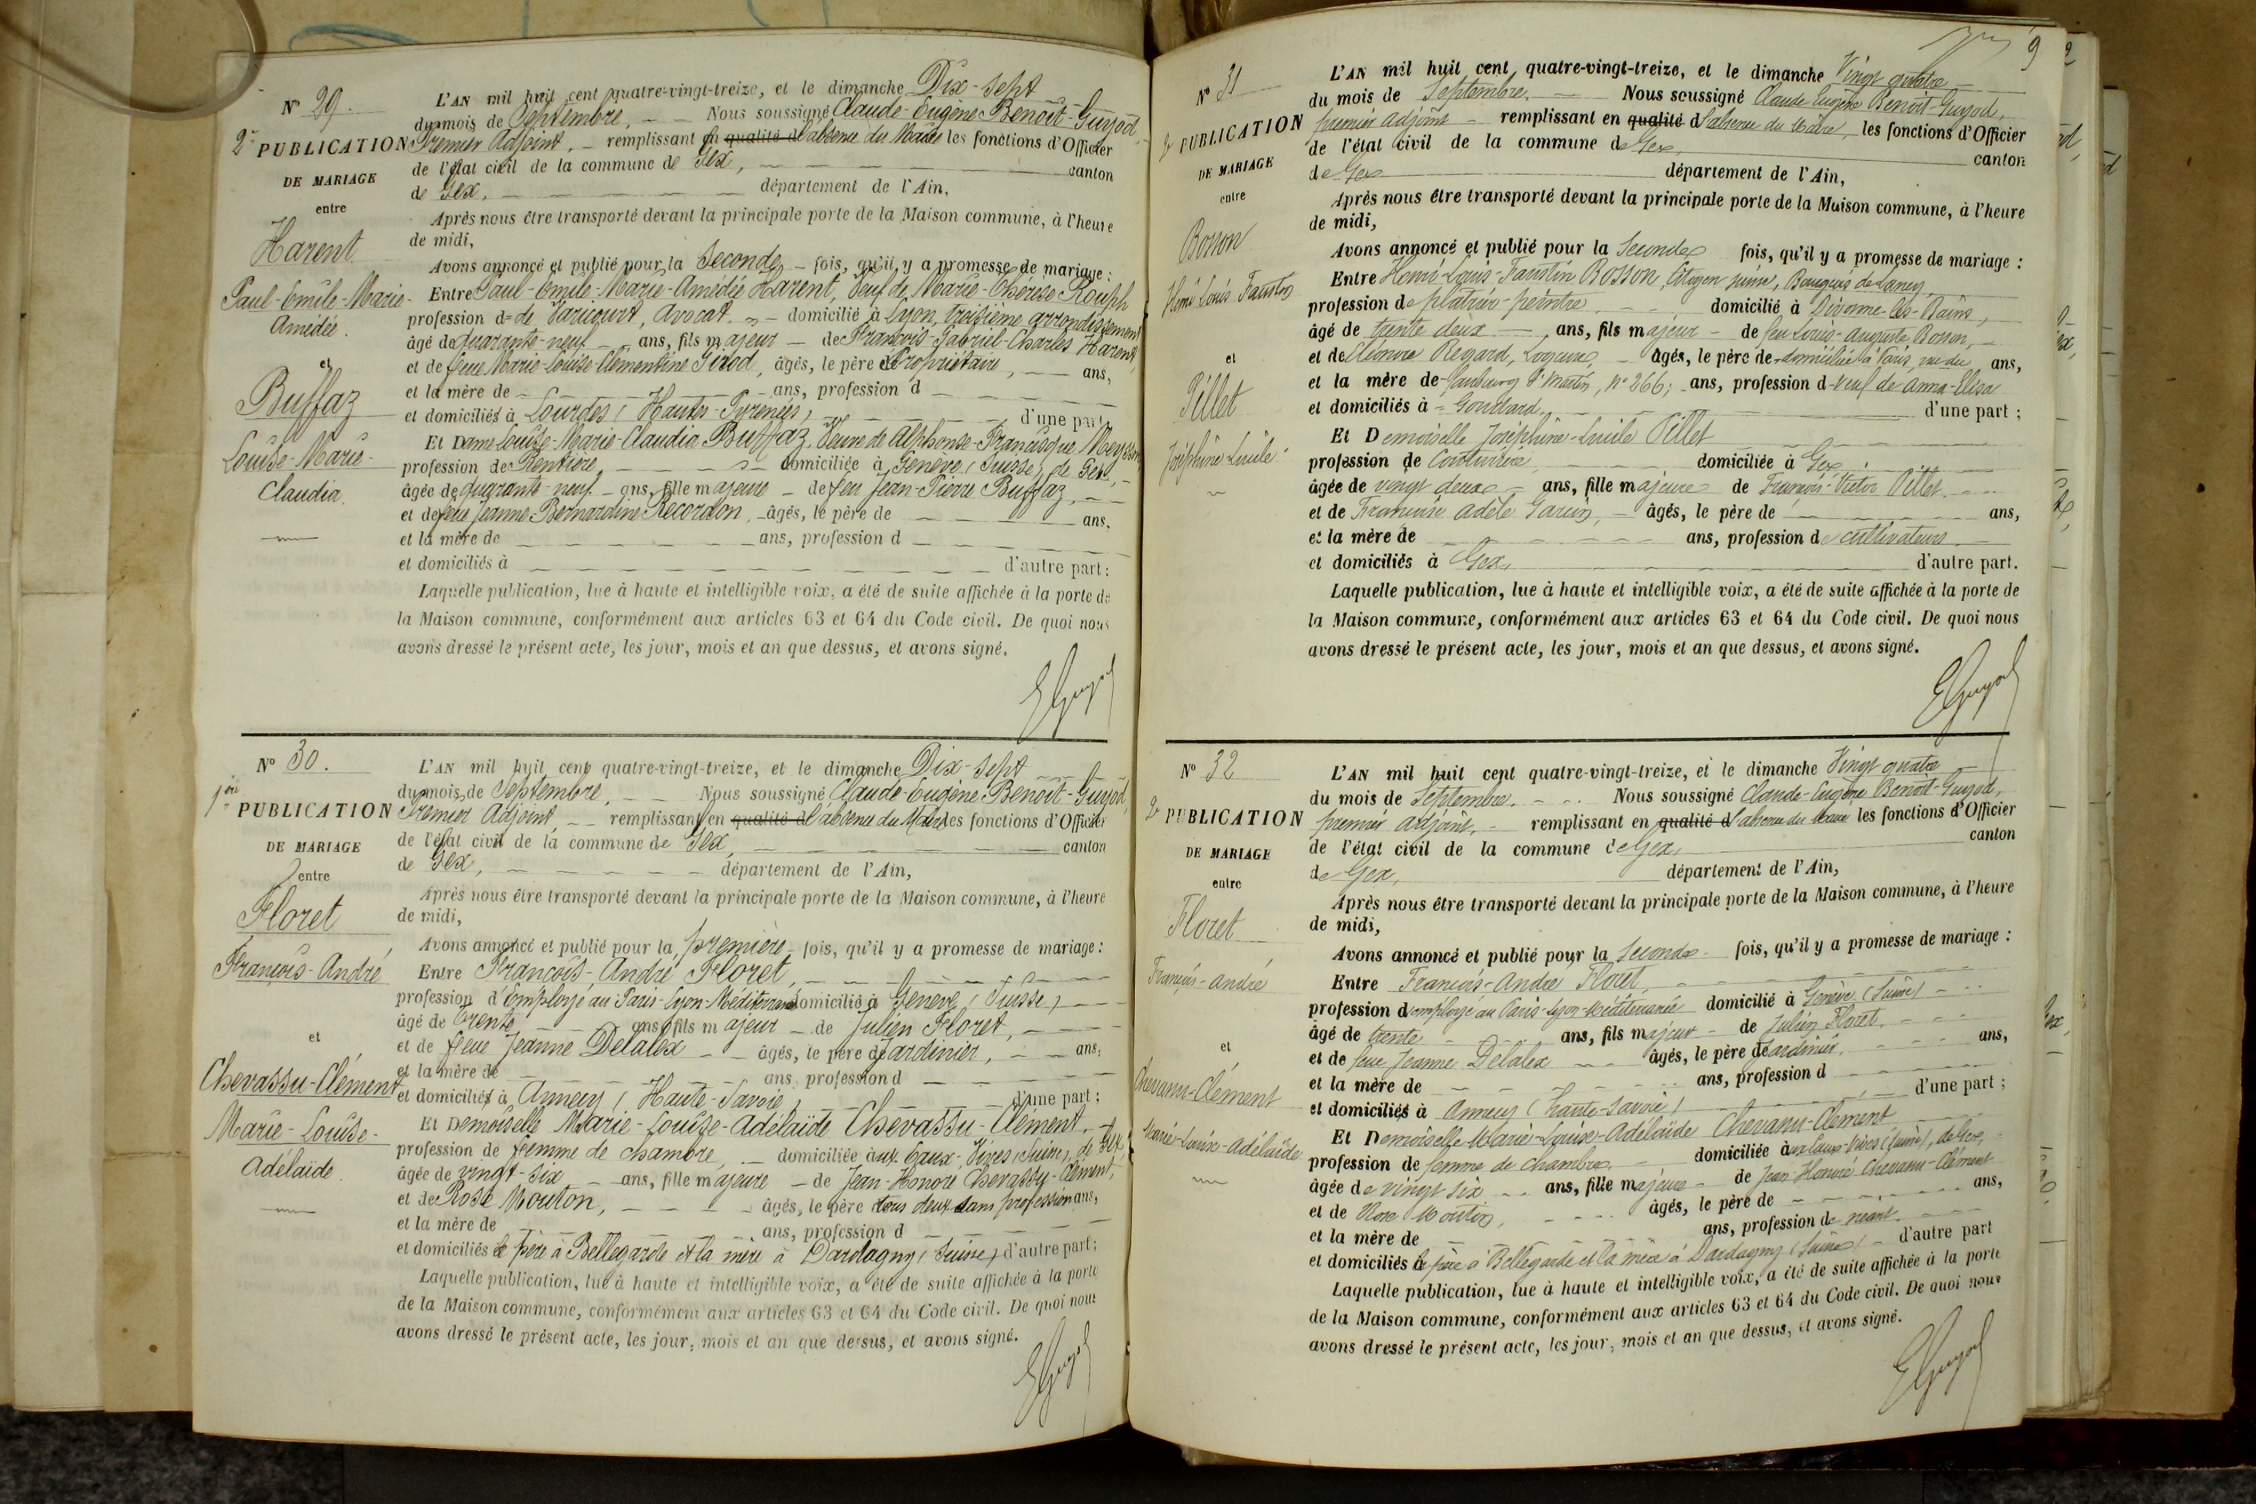 N° 29.
2e PUBLICATION
DE MARIAGE
entre
Harent
Paul-Emile-Marie-
Amédée.
et
Buffaz
Louise-Marie-
Claudia.
L'AN mil huit cent quatre-vingt-treize, et le dimanche Dix-sept
du mois de Septembre, Nous soussigné Claude-Eugène Benoît-Guyod,
Premier Adjoint, remplissant en qualité d l'absence du Maire les fonctions d'Officier
de l'état civil de la commune de Gex, canton
de Gex, département de l'Ain,
Après nous être transporté devant la principale porte de la Maison commune, à l'heure
de midi,
Avons annoncé et publié pour la Seconde fois, qu'il y a promesse de mariage :
Entre Paul-Emile-Marie-Amédée Harent, Veuf de Marie-Thérèse Rouph
profession d= de Varicourt, Avocat domicilié à Lyon, troisième arrondissement
âgé de quarante-neuf ans, fils majeur de François-Gabriel-Charles Harent,
et de feue Marie-Louise-Clémentine Girod, âgés, le père de Propriétaire, ans,
et la mère de ans, profession d
et domiciliés à Lourdes (Hautes-Pyrénées) d'une part;
Et Dame Louise-Marie-Claudia Buffaz, Veuve de Alphonse-Francisque Meysson
profession de Rentière, domiciliée à Genève (Suisse), de Gex,
âgée de quarante-neuf ans, fille majeure de feu Jean-Pierre Buffaz,
et de feue Jeanne-Bernardine Recordon, âgés, le père de ans,
et la mère de ans, profession d
et domiciliés à d'autre part:
Laquelle publication, lue à haute et intelligible voix, a été de suite affichée à la porte de
la Maison commune, conformément aux articles 63 et 64 du Code civil. De quoi nous
avons dressé le présent acte, les jour, mois et an que dessus, et avons signé.
EGuyod
N° 30.
1ère PUBLICATION
DE MARIAGE
entre
Floret
François-André
et
Chevassu-Clément
Marie-Louise-
Adélaïde.
L'AN mil huit cent quatre-vingt-treize, et le dimanche Dix-sept
du mois de Septembre, Nous soussigné Claude-Eugène Benoît-Guyod,
Premier Adjoint, remplissant en qualité d l'absence du Maire les fonctions d'Officier
de l'état civil de la commune de Gex, canton
de Gex, département de l'Ain,
Après nous être transporté devant la principale porte de la Maison commune, à l'heure
de midi,
Avons annoncé et publié pour la première fois, qu'il y a promesse de mariage :
Entre François-André Floret,
profession d'Employé au Paris-Lyon-Méditerranée domicilié à Genève (Suisse)
âgé de trente ans, fils majeur de Julien Floret,
et de feue Jeanne Délalex âgés, le père de Jardinier, ans,
et la mère de ans, profession d
et domiciliés à Annecy (Haute-Savoie) d'une part ;
Et Demoiselle Marie-Louise-Adélaïde Chevassu-Clément,
profession de femme de chambre, domiciliée aux Eaux-Vives (Suisse), de Gex,
âgée de vingt-six ans, fille majeure de Jean-Honoré Chevassu-Clément,
et de Rose Mouton, âgés, le père tous deux sans profession ans,
et la mère de ans, profession d
et domiciliés le père à Bellegarde et la mère à Dardagny (Suisse) d'autre part;
Laquelle publication, lue à haute et intelligible voix, a été de suite affichée à la porte
de la Maison commune, conformément aux articles 63 et 64 du Code civil. De quoi nous
avons dressé le présent acte, les jour, mois et an que dessus, et avons signé.
EGuyod
9
N° 31
2e PUBLICATION
DE MARIAGE
entre
Bosson
Henri Louis Faustin
et
Pillet
Joséphine-Lucile
L'AN mil huit cent quatre-vingt-treize, et le dimanche Vingt quatre
du mois de Septembre. Nous soussigné Claude Eugène Benoit-Guyod,
premier adjoint remplissant en qualité d l'absence du Maire, les fonctions d'Officier
de l'état civil de la commune de Gex, canton
de Gex département de l'Ain,
Après nous être transporté devant la principale porte de la Maison commune, à l'heure
de midi,
Avons annoncé et publié pour la Seconde fois, qu'il y a promesse de mariage :
Entre Henri-Louis-Faustin Bosson, Citoyen suisse, Bourgeois de Lancy,
profession de plâtrier-peintre domicilié à Divonne-les-Bains,
âgé de trente deux ans, fils majeur de feu Louis-Auguste Bosson,
et de Eléonore Regard, âgés, le père de domiciliée à Paris, rue du ans,
et la mère de Faubourg St Martin, N° 266; ans, profession d veuf de Anna-Elisa
et domiciliés à Goudard, d'une part ;
Et Demoiselle Joséphine-Lucile Pillet
profession de Couturière domiciliée à Gex,
âgée de vingt deux ans, fille majeure de François-Victor Pillet.
et de Françoise Adèle Garin, âgés, le père de ans,
et la mère de ans, profession de cultivateurs
et domiciliés à Gex, d'autre part.
Laquelle publication, lue à haute et intelligible voix, a été de suite affichée à la porte de
la Maison commune, conformément aux articles 63 et 64 du Code civil. De quoi nous
avons dressé le présent acte, les jour, mois et an que dessus, et avons signé.
EGuyod
N° 32
2e PUBLICATION
DE MARIAGE
entre
Floret
François-André
et
Chevassu-Clément
Marie-Louise-Adélaïde
L'AN mil huit cent quatre-vingt-treize, et le dimanche Vingt quatre
du mois de Septembre. Nous soussigné Claude-Eugène Benoit-Guyod,
premier adjoint, remplissant en qualité d l'absence du Maire les fonctions d'Officier
de l'état civil de la commune de Gex, canton
de Gex, département de l'Ain,
Après nous être transporté devant la principale porte de la Maison commune, à l'heure
de midi,
Avons annoncé et publié pour la Seconde fois, qu'il y a promesse de mariage :
Entre François-André Floret,
profession d'employé au Paris-Lyon-Méditerranée domicilié à Genève (Suisse)
âgé de trente ans, fils majeur de Julien Floret,
et de feue Jeanne Délalex âgés, le père de Jardinier, ans,
et la mère de ans, profession d
et domiciliés à Annecy (Haute-Savoie) d'une part ;
Et Demoiselle Marie-Louise-Adélaïde Chevassu-Clément
profession de femme de chambre, domiciliée aux Eaux-Vives (Suisse), de Gex,
âgée de vingt six ans, fille majeure de Jean-Honoré Chevassu-Clément
et de Rose Mouton, âgés, le père de ans,
et la mère de ans, profession de néant.
et domiciliés le père à Bellegarde et la mère à Dardagny (Suisse) d'autre part
Laquelle publication, lue à haute et intelligible voix, a été de suite affichée à la porte
de la Maison commune, conformément aux articles 63 et 64 du Code civil. De quoi nous
avons dressé le présent acte, les jour, mois et an que dessus, et avons signé.
EGuyod